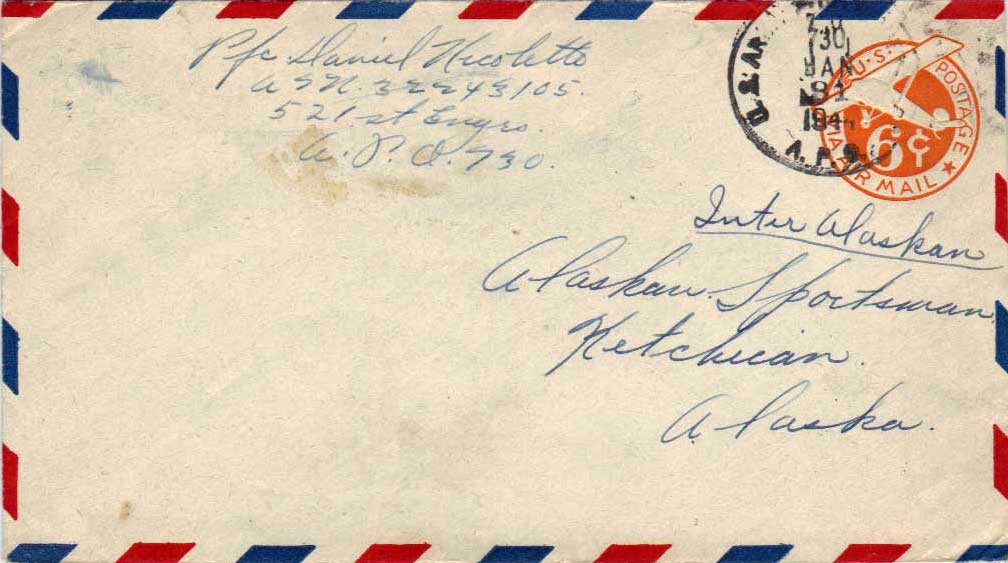 Pfc. Daniel Nicoletto
ASN. 32243105.
521st Engrs.
A. P. O. 730.
U.S. AR
730
JAN
31
194
A. P. O.
U.S. POSTAGE
6¢
VIA AIR MAIL
Inter Alaskan
Alaskan Sportsman
Ketchican.
Alaska.